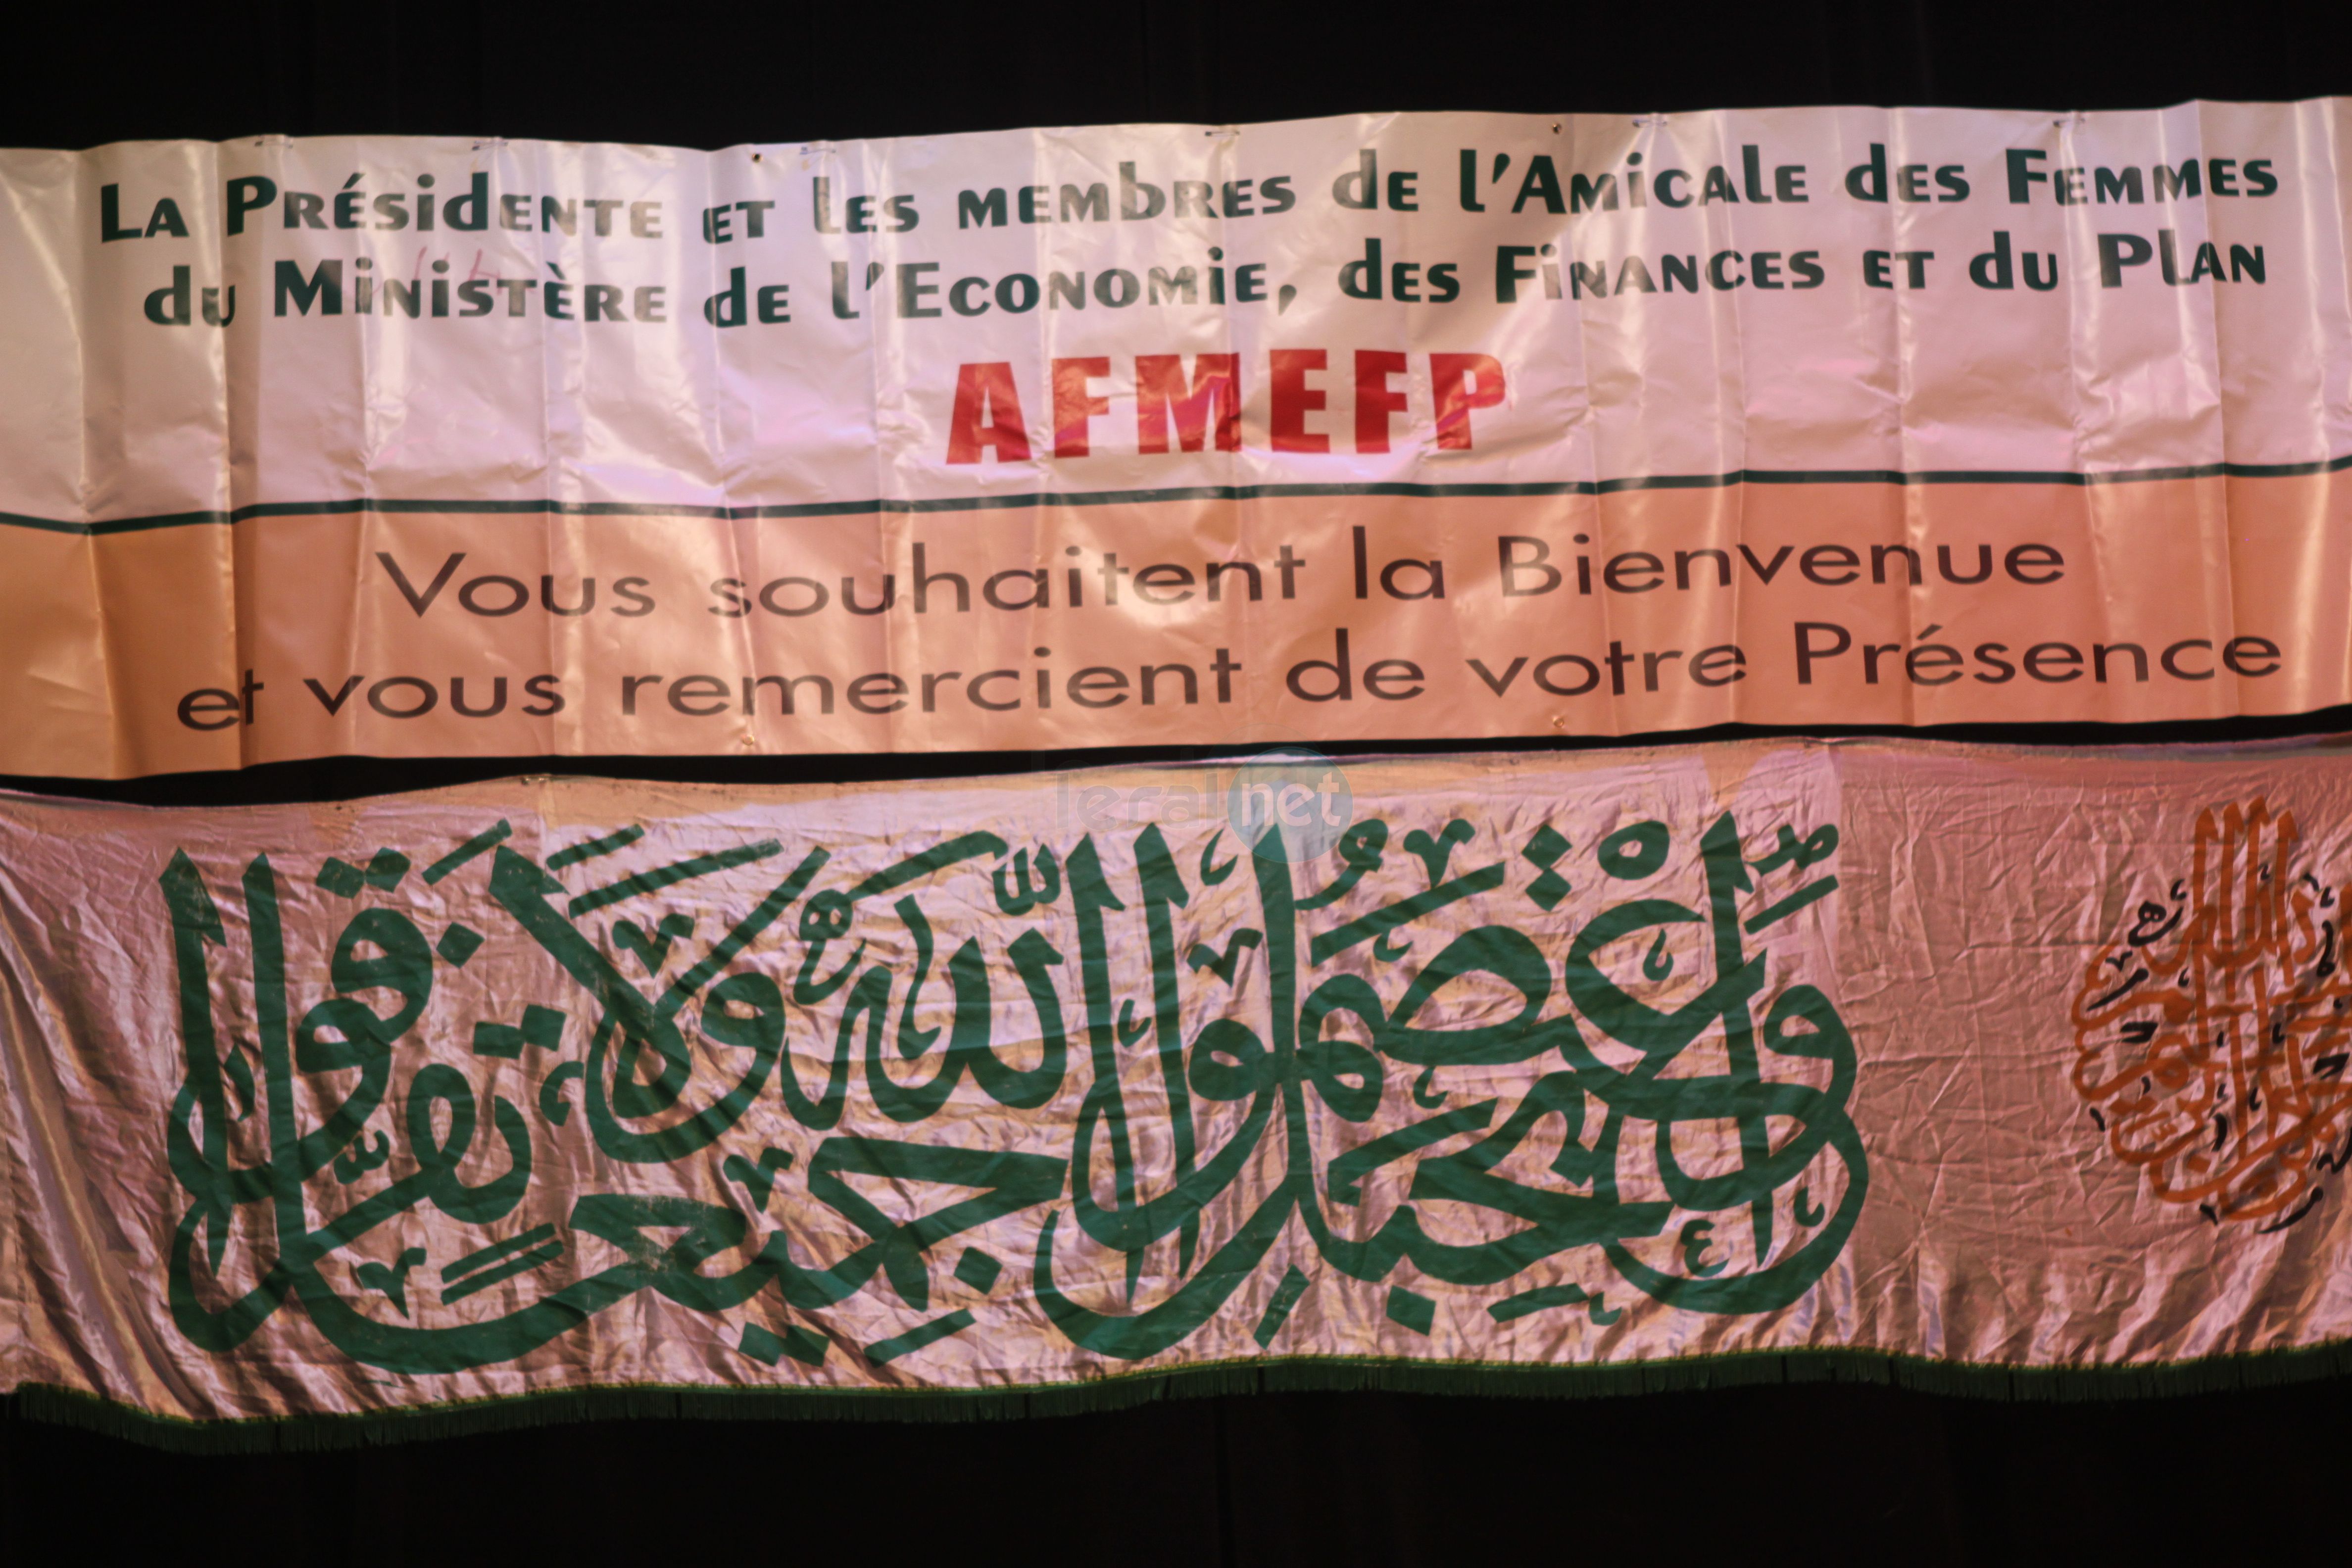 La Présidente et les membres de l'Amicale des Femmes
du Ministère de l'Economie, des Finances et du Plan
AFMEFP
Vous souhaitent la Bienvenue
et vous remercient de votre Présence
leral net
واعتصموا بحبل الله جميعا ولا تفرقوا